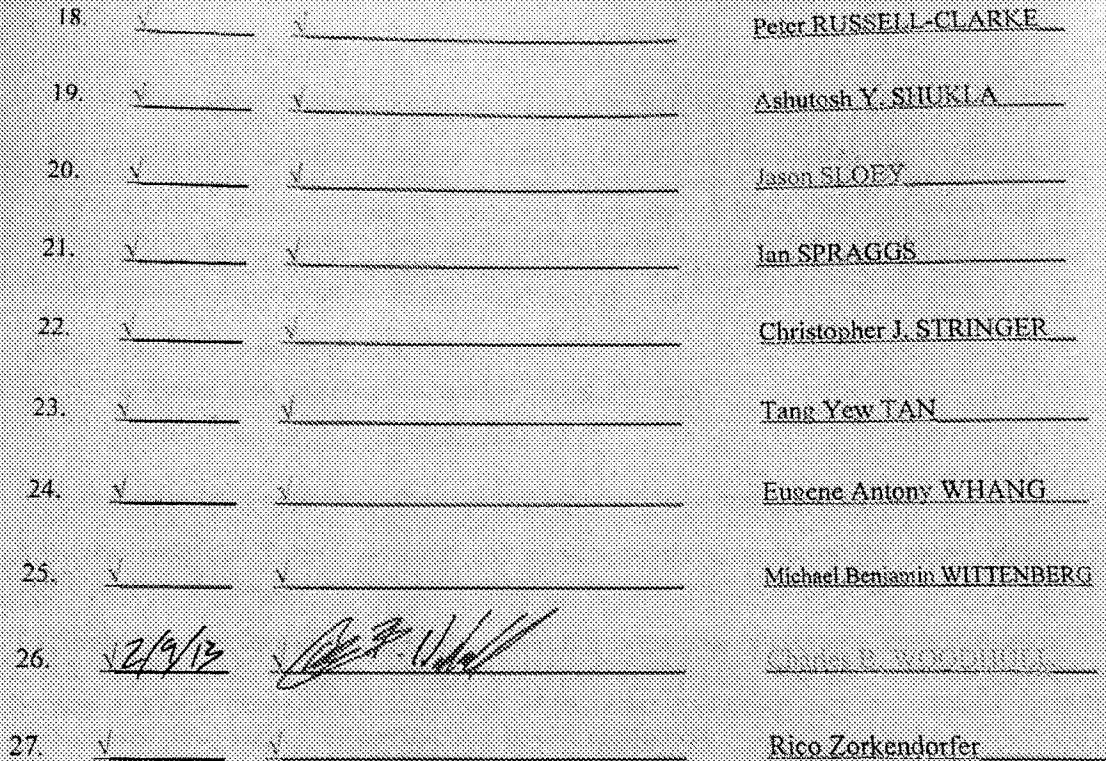 18. √ √ Peter RUSSELL-CLARKE
19. √ √ Ashutosh Y. SHUKLA
20. √ √ Jason SLOEY
21. √ √ Ian SPRAGGS
22. √ √ Christopher J. STRINGER
23. √ √ Tang Yew TAN
24. √ √ Eugene Antony WHANG
25. √ √ Michael Benjamin WITTENBERG
26. √ 2/9/13 √
27. √ √ Rico Zorkendorfer